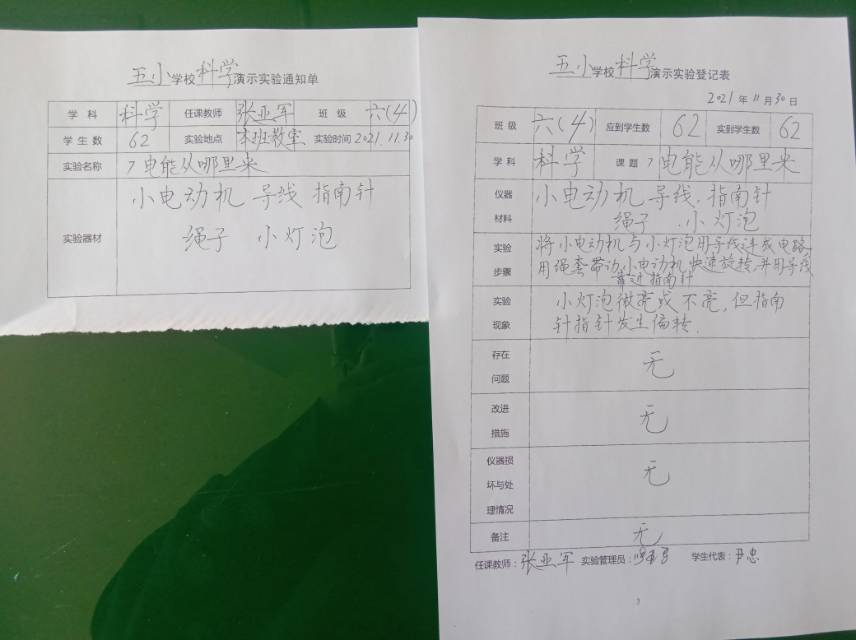 五小学校科学演示实验通知单
学 科 科学 任课教师 张亚军 班 级 六(4)
学 生 数 62 实验地点 本班教室 实验时间 2021.11.30
实验名称 7 电能从哪里来
实验器材
小电动机 导线 指南针
绳子 小灯泡
五小学校科学演示实验登记表
2021 年 11 月 30 日
班 级 六(4) 应到学生数 62 实到学生数 62
学 科 科学 课 题 7 电能从哪里来
仪器材料
小电动机 导线. 指南针
绳子 .小灯泡
实验步骤
将小电动机与小灯泡用导线连成电路
用绳套带动小电动机快速旋转,并用导线
靠近指南针
实验现象
小灯泡微亮或不亮,但指南
针指针发生偏转.
存在问题
无
改进措施
无
仪器损坏与处理情况
无
备注 无
任课教师:张亚军 实验管理员: 学生代表:尹忠